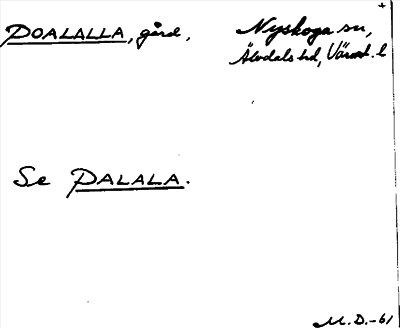 +
DOALALLA, gård, Nyskoga sn,
Älvdals hd, Värml. l
Se PALALA.
M.D.-61